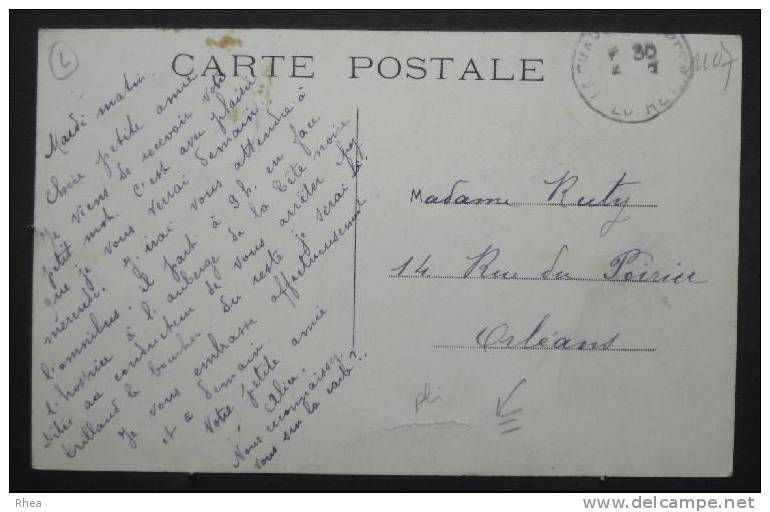 CARTE POSTALE
L
1107
30
Mardi matin
Chère petite amie
Je viens de recevoir votre
petit mot. C'est avec plaisir
que je vous verrai demain
mercredi. J'irai vous attendre à
l'omnibus. il part à 9h. en face
l'hospice à l'auberge de la tête noire
dites au conducteur de vous arrêter chez
Brilland le boucher. Du reste je serai là.
Je vous embrasse affectueusement
et à demain.
Votre petite amie
Alice.
Nous reconnaissez-
vous sur la carte?.
Madame Ruty
14 Rue du Poirier
Orléans
pli
Rhea
delcampe.net